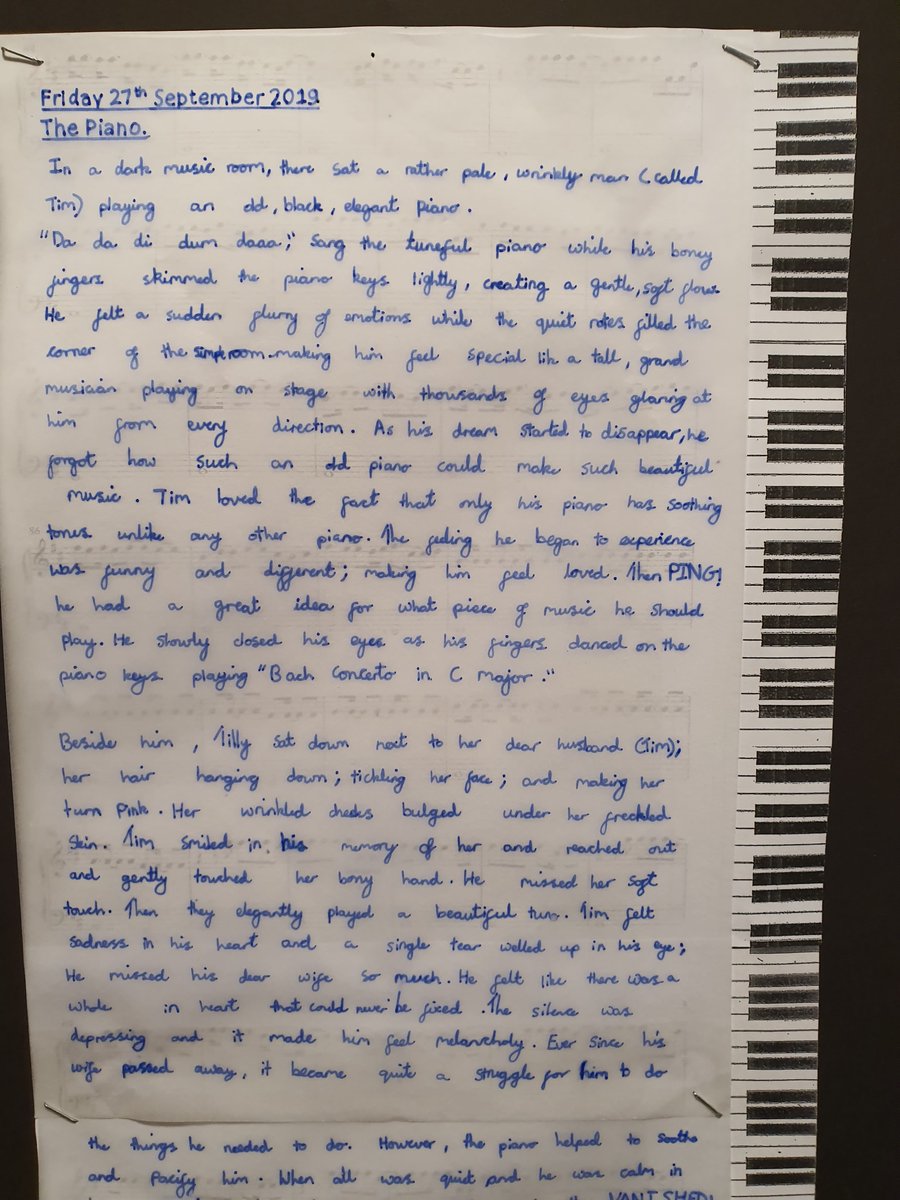 Friday 27th September 2019
The Piano.
In a dark music room, there sat a rather pale, wrinkly man (called
Tim) playing an old, black, elegant piano.
"Da da di dum daaa;" sang the tuneful piano while his boney
fingers skimmed the piano keys lightly, creating a gentle, soft flow.
He felt a sudden flurry of emotions while the quiet notes filled the
corner of the simple room making him feel special like a tall, grand
musician playing on stage with thousands of eyes glaring at
him from every direction. As his dream started to disappear, he
forgot how such an old piano could make such beautiful
music. Tim loved the fact that only his piano has soothing
tones unlike any other piano. The feeling he began to experience
was funny and different; making him feel loved. Then PING!
he had a great idea for what piece of music he should
play. He slowly closed his eyes as his fingers danced on the
piano keys playing "Bach Concerto in C major."
Beside him, Tilly sat down next to her dear husband (Tim);
her hair hanging down; tickling her face; and making her
turn pink. Her wrinkled cheeks bulged under her freckled
skin. Tim smiled in his memory of her and reached out
and gently touched her bony hand. He missed her soft
touch. Then they elegantly played a beautiful tune. Tim felt
sadness in his heart and a single tear welled up in his eye;
He missed his dear wife so much. He felt like there was a
whole in heart that could never be fixed. The silence was
depressing and it made him feel melancholy. Ever since his
wife passed away, it became quite a struggle for him to do
the things he needed to do. However, the piano helped to soothe
and pacify him. When all was quiet and he was calm in
VANISHED!